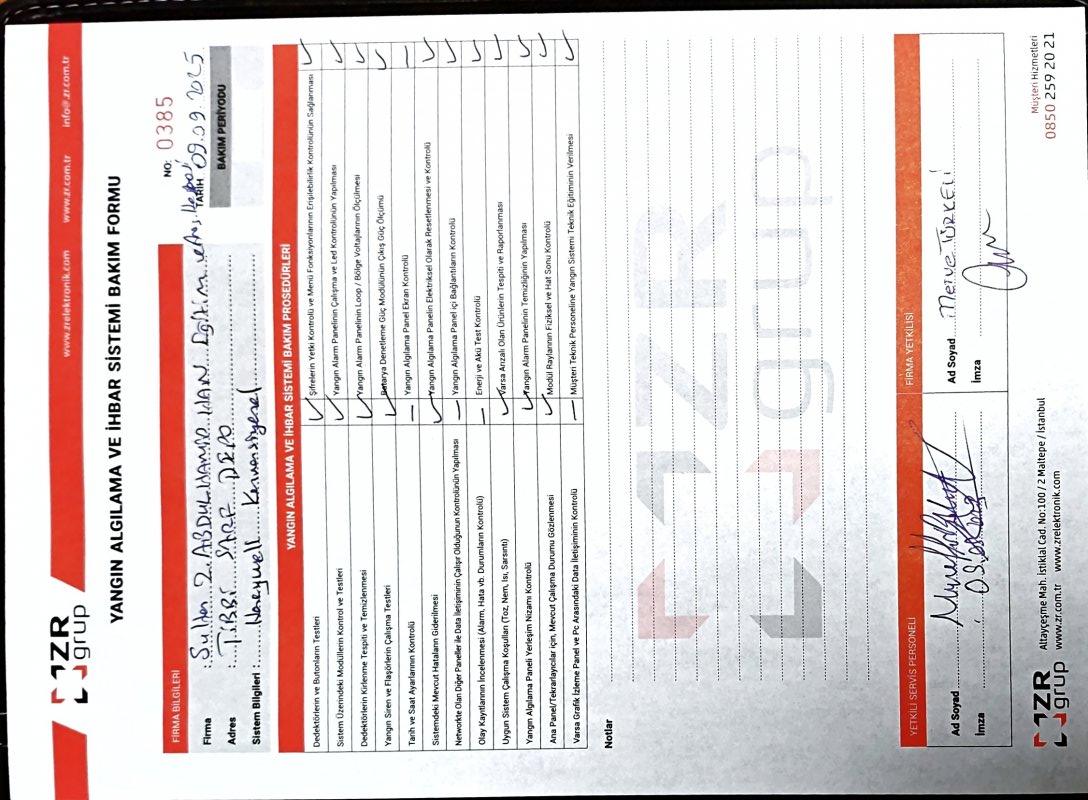 ZR
grup
www.zrelektronik.com www.zr.com.tr info@zr.com.tr
YANGIN ALGILAMA VE İHBAR SİSTEMİ BAKIM FORMU
NO: 0385
FİRMA BİLGİLERİ
TARİH 09.09.2025
Firma : Sultan 2. ABDULHAMİD HAN Eğitim ve Araş. Hastanesi
Adres : TIBBİ SARF DEPO
BAKIM PERİYODU
Sistem Bilgileri : Honeywell Konvansiyonel
YANGIN ALGILAMA VE İHBAR SİSTEMİ BAKIM PROSEDÜRLERİ
Dedektörlerin ve Butonların Testleri ✓ Şifrelerin Yetki Kontrolü ve Menü Fonksiyonlarının Erişilebilirlik Kontrolünün Sağlanması ✓
Sistem Üzerindeki Modüllerin Kontrol ve Testleri ✓ Yangın Alarm Panelinin Çalışma ve Led Kontrolünün Yapılması ✓
Dedektörlerin Kirlenme Tespiti ve Temizlenmesi ✓ Yangın Alarm Panelinin Loop / Bölge Voltajlarının Ölçülmesi ✓
Yangın Siren ve Flaşörlerin Çalışma Testleri ✓ Batarya Denetleme Güç Modülünün Çıkış Güç Ölçümü ✓
Tarih ve Saat Ayarlarının Kontrolü — Yangın Algılama Panel Ekran Kontrolü —
Sistemdeki Mevcut Hataların Giderilmesi ✓ Yangın Algılama Panelin Elektriksel Olarak Resetlenmesi ve Kontrolü ✓
Networkte Olan Diğer Paneller ile Data İletişiminin Çalışır Olduğunun Kontrolünün Yapılması — Yangın Algılama Panel içi Bağlantıların Kontrolü ✓
Olay Kayıtlarının İncelenmesi (Alarm, Hata vb. Durumların Kontrolü) — Enerji ve Akü Test Kontrolü ✓
Uygun Sistem Çalışma Koşulları (Toz, Nem, Isı, Sarsıntı) ✓ Varsa Arızalı Olan Ürünlerin Tespiti ve Raporlanması ✓
Yangın Algılama Paneli Yerleşim Nizamı Kontrolü ✓ Yangın Alarm Panelinin Temizliğinin Yapılması ✓
Ana Panel/Tekrarlayıcılar için, Mevcut Çalışma Durumu Gözlenmesi ✓ Modül Raylarının Fiziksel ve Hat Sonu Kontrolü ✓
Varsa Grafik İzleme Panel ve Pc Arasındaki Data İletişiminin Kontrolü — Müşteri Teknik Personeline Yangın Sistemi Teknik Eğitiminin Verilmesi ✓
Notlar
ZR
grup
YETKİLİ SERVİS PERSONELİ FİRMA YETKİLİSİ
Ad Soyad Ad Soyad Merve TÜRKELİ
İmza İmza
ZR
grup
Altayçeşme Mah. İstiklal Cad. No:100 / 2 Maltepe / İstanbul
www.zr.com.tr www.zrelektronik.com
Müşteri Hizmetleri
0850 259 20 21